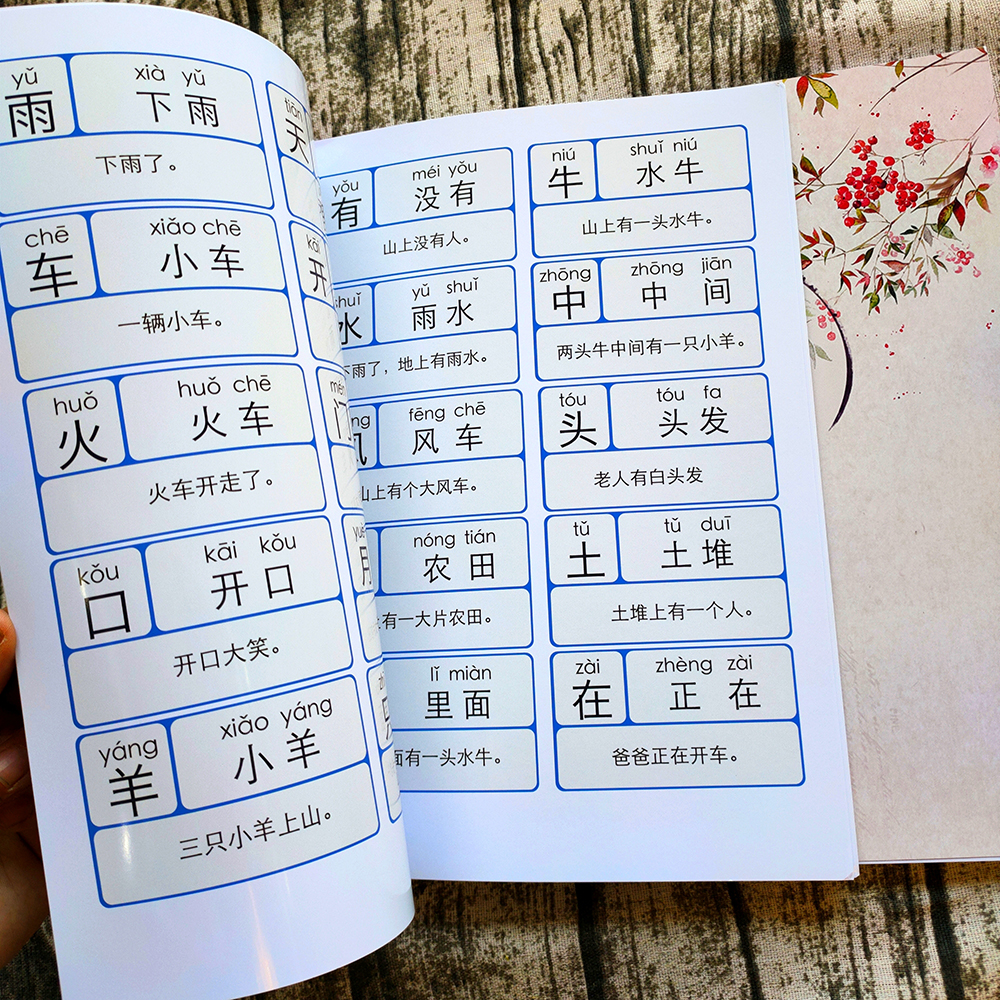 yǔ
雨
xià yǔ
下雨
下雨了。
chē
车
xiǎo chē
小车
一辆小车。
huǒ
火
huǒ chē
火车
火车开走了。
kǒu
口
kāi kǒu
开口
开口大笑。
yáng
羊
xiǎo yáng
小羊
三只小羊上山。
天
kāi
开
yǒu
有
méi yǒu
没有
山上没有人。
shuǐ
水
yǔ shuǐ
雨水
下雨了，地上有雨水。
风
fēng chē
风车
山上有个大风车。
nóng tián
农田
有一大片农田。
lǐ miàn
里面
面有一头水牛。
niú
牛
shuǐ niú
水牛
山上有一头水牛。
zhōng
中
zhōng jiān
中间
两头牛中间有一只小羊。
tóu
头
tóu fa
头发
老人有白头发
tǔ
土
tǔ duī
土堆
土堆上有一个人。
zài
在
zhèng zài
正在
爸爸正在开车。